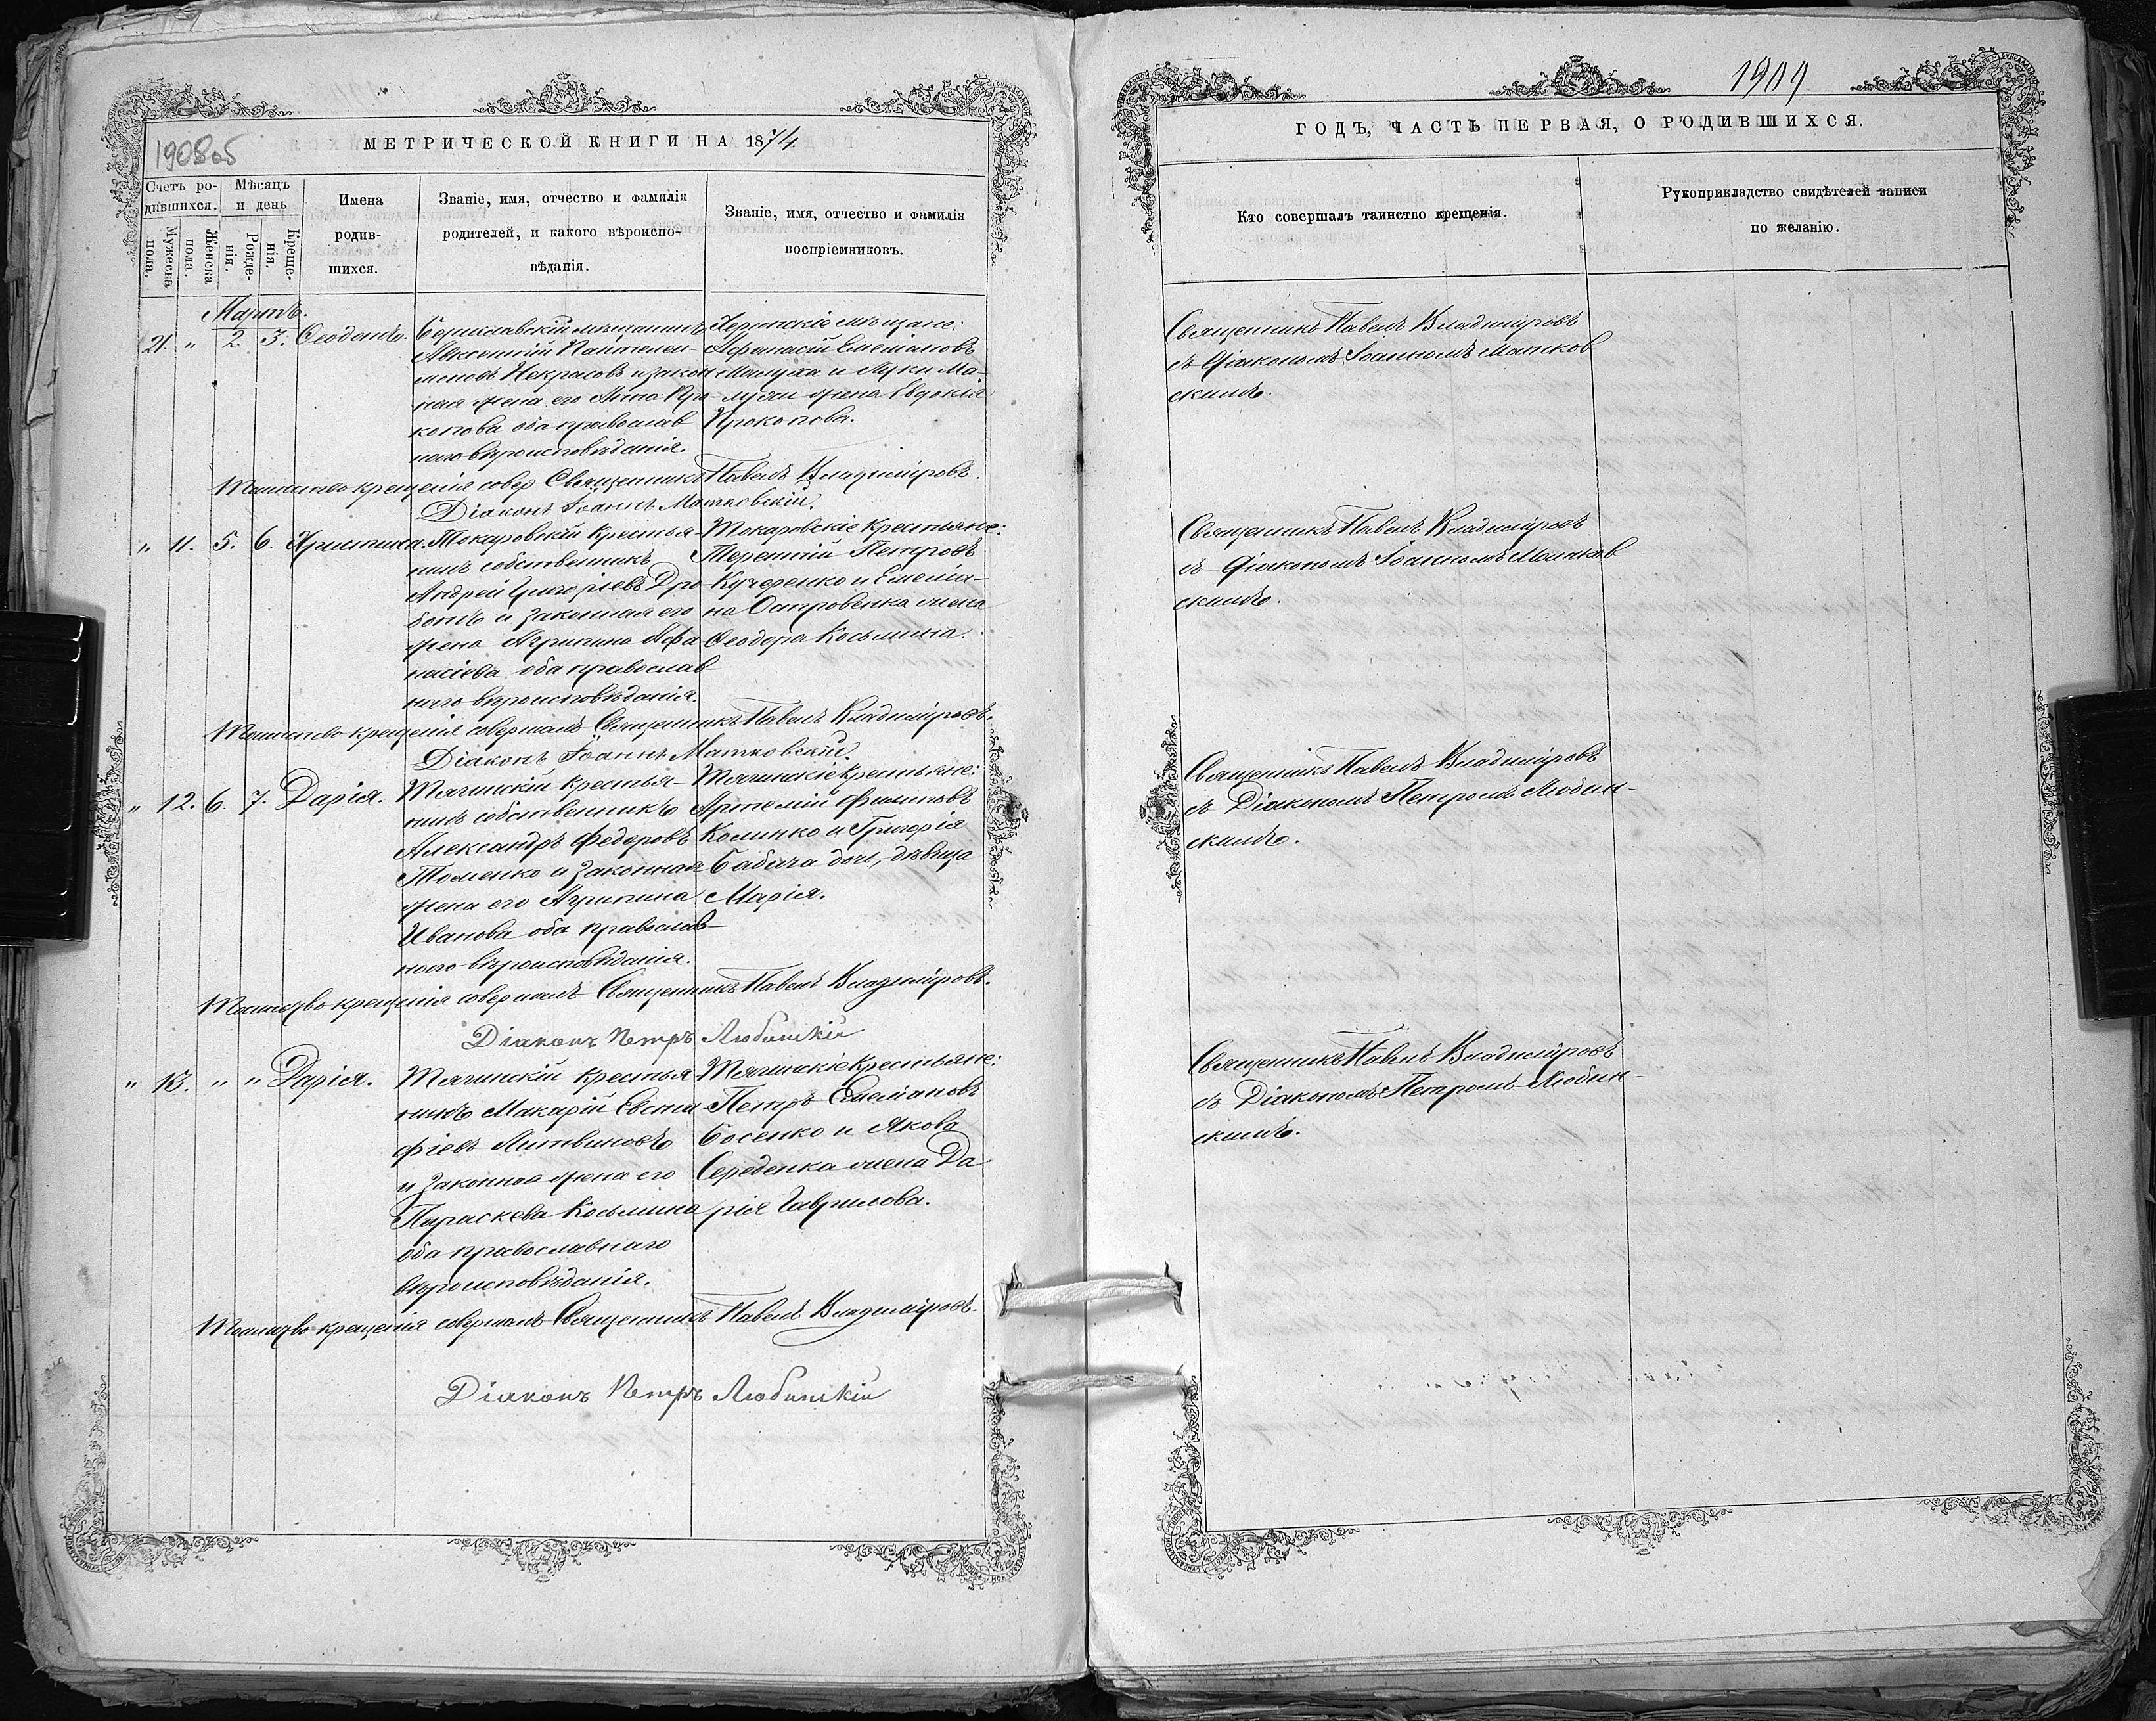 1908об
МЕТРИЧЕСКОЙ КНИГИ НА 1874.
Счетъ ро-
дившихся.
Мѣсяцъ
и день
Имена
родив-
шихся.
Званіе, имя, отчество и фамилія
родителей, и какого вѣроиспо-
вѣданія.
Званіе, имя, отчество и фамилія
воспріемниковъ.
Мужеска
пола.
Женска
пола.
Рожде-
нія.
Креще-
нія.
Мартъ.
21. " 2. 3. Ѳеодотъ.
Бериславскій мѣщанинъ
Авксентій Пантелеи-
моновъ Некрасовъ и закон
ная жена его Анна Про-
копова оба православ
наго вѣроисповѣданія.
Херсонскіе мѣщане:
Афанасій Емеліановъ
Мамуха и Луки Ма-
мухи жена Евдокія
Прокопова.
Таинство крещенія совер Священникъ Павелъ Владиміровъ.
Діаконъ Іоаннъ Матковскій.
" 11. 5. 6. Христина.
Токаровскій крестья-
нинъ собственникъ
Андрей Григоріевъ Дро-
ботъ и законная его
жена Агрипина Афа
насіева оба православ
наго вѣроисповѣданія.
Токаровскіе крестьяне:
Терентій Петровъ
Кучеренко и Емеліа-
на Островенка жена
Ѳеодора Косьмина.
Таинство крещенія совершалъ Священникъ Павелъ Владиміровъ.
Діаконъ Іоаннъ Матковскій.
" 12. 6. 7. Дарія.
Тягинскій крестья-
нинъ собственникъ
Александръ Федоровъ
Томенко и законная
жена его Агрипина
Иванова оба православ-
ного вѣроисповѣданія.
Тягинскіе крестьяне:
Артемій Филиповъ
Коминко и Григорія
Бабича дочь, дѣвица
Марія.
Таинство крещенія совершалъ Священникъ Павелъ Владиміровъ.
Діаконъ Петръ Любинскій
" 13. " " Дарія.
Тягинскій крестья
нинъ Макарій Евста
фіевъ Литвиновъ
и законная жена его
Параскева Косьмина
оба православнаго
вѣроисповѣданія.
Тягинскіе крестьяне:
Петръ Емеліановъ
Босенко и Якова
Середенка жена Да
рія Гаврилова.
Таинство крещенія совершалъ Священникъ Павелъ Владиміровъ.
Діаконъ Петръ Любинскій
1909
ГОДЪ, ЧАСТЬ ПЕРВАЯ, О РОДИВШИХСЯ.
Кто совершалъ таинство крещенія.
Рукоприкладство свидѣтелей записи
по желанію.
Священникъ Павелъ Владиміровъ
съ Діакономъ Іоанномъ Матков
скимъ.
Священникъ Павелъ Владиміровъ
съ Діакономъ Іоанномъ Матков
скимъ.
Священникъ Павелъ Владиміровъ
съ Діакономъ Петромъ Любин-
скимъ.
Священникъ Павелъ Владиміровъ
съ Діакономъ Петромъ Любин-
скимъ.